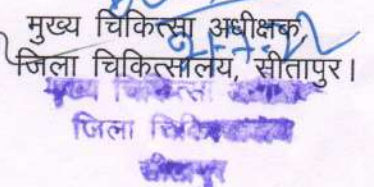 मुख्य चिकित्सा अधीक्षक,
जिला चिकित्सालय, सीतापुर।
मुख्य चिकित्सा
जिला चिकित्सालय
सीतापुर